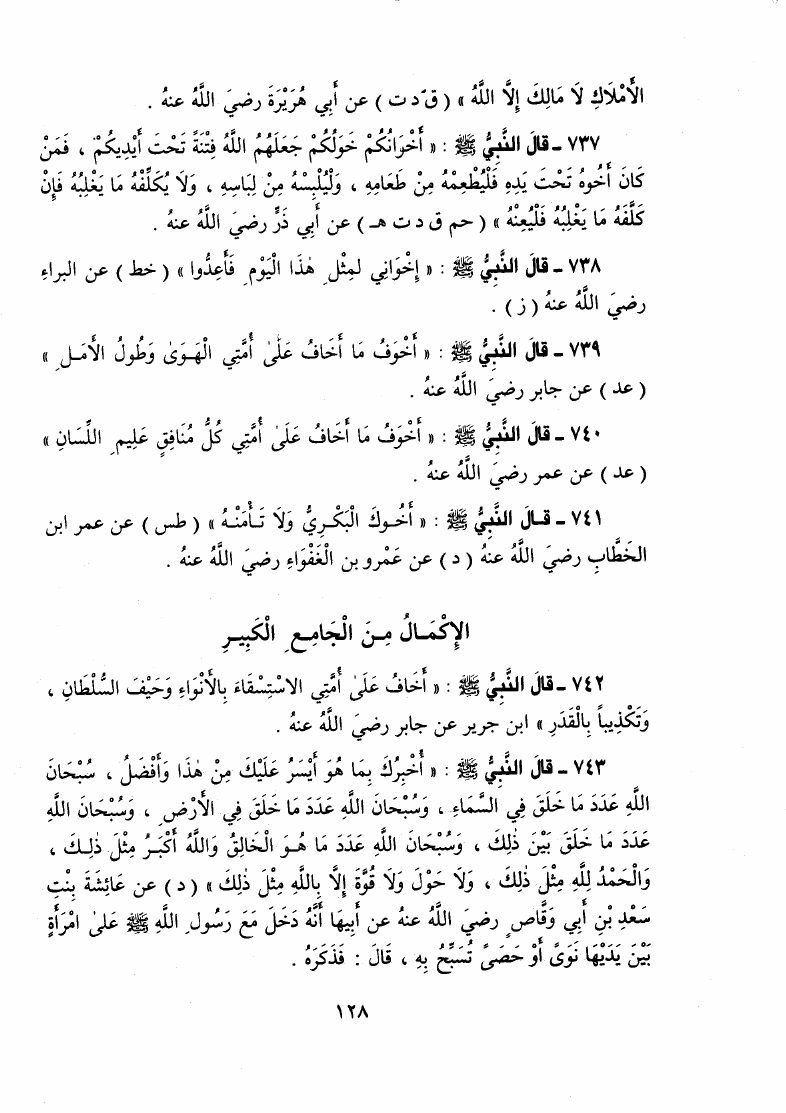 الأَمْلَاكِ لَا مَالِكَ إِلَّا اللَّهُ » ( ق د ت ) عن أبي هُرَيْرَةَ رضيَ اللَّهُ عنهُ .
٧٣٧ - قالَ النَّبِيُّ ﷺ : « أَخْوَانُكُمْ خَوَلُكُمْ جَعَلَهُمُ اللَّهُ فِتْنَةً تَحْتَ أَيْدِيكُمْ ، فَمَنْ
كَانَ أَخُوهُ تَحْتَ يَدِهِ فَلْيُطْعِمْهُ مِنْ طَعَامِهِ ، وَلْيُلْبِسْهُ مِنْ لِبَاسِهِ ، وَلَا يُكَلِّفْهُ مَا يَغْلِبُهُ فَإِنْ
كَلَّفَهُ مَا يَغْلِبُهُ فَلْيُعِنْهُ » ( حم ق د ت هـ ) عن أبي ذَرٍّ رضيَ اللَّهُ عنهُ .
٧٣٨ - قالَ النَّبِيُّ ﷺ : « إِخْوَانِي لِمِثْلِ هٰذَا الْيَوْمِ فَأَعِدُّوا » ( خط ) عن البراءِ
رضيَ اللَّهُ عنهُ ( ز ) .
٧٣٩ - قالَ النَّبِيُّ ﷺ : « أَخْوَفُ مَا أَخَافُ عَلَىٰ أُمَّتِي الْهَوَىٰ وَطُولُ الأَمَلِ »
( عد ) عن جابر رضيَ اللَّهُ عنهُ .
٧٤٠ - قالَ النَّبِيُّ ﷺ : « أَخْوَفُ مَا أَخَافُ عَلَىٰ أُمَّتِي كُلُّ مُنَافِقٍ عَلِيمِ اللِّسَانِ »
( عد ) عن عمر رضيَ اللَّهُ عنهُ .
٧٤١ - قالَ النَّبِيُّ ﷺ : « أَخُوكَ الْبَكْرِيُّ وَلَا تَأْمَنْهُ » ( طس ) عن عمر ابن
الخَطَّابِ رضيَ اللَّهُ عنهُ ( د ) عن عَمْرو بن الْغَفْوَاءِ رضيَ اللَّهُ عنهُ .
الإِكْمَالُ مِنَ الْجَامِعِ الْكَبِيرِ
٧٤٢ - قالَ النَّبِيُّ ﷺ : « أَخَافُ عَلَىٰ أُمَّتِي الاسْتِسْقَاءَ بِالأَنْوَاءِ وَحَيْفَ السُّلْطَانِ ،
وَتَكْذِيباً بِالْقَدَرِ » ابن جرير عن جابر رضيَ اللَّهُ عنهُ .
٧٤٣ - قالَ النَّبِيُّ ﷺ : « أُخْبِرُكِ بِمَا هُوَ أَيْسَرُ عَلَيْكِ مِنْ هٰذَا وَأَفْضَلُ ، سُبْحَانَ
اللَّهِ عَدَدَ مَا خَلَقَ فِي السَّمَاءِ ، وَسُبْحَانَ اللَّهِ عَدَدَ مَا خَلَقَ فِي الأَرْضِ ، وَسُبْحَانَ اللَّهِ
عَدَدَ مَا خَلَقَ بَيْنَ ذٰلِكَ ، وَسُبْحَانَ اللَّهِ عَدَدَ مَا هُوَ الْخَالِقُ وَاللَّهُ أَكْبَرُ مِثْلَ ذٰلِكَ ،
وَالْحَمْدُ لِلَّهِ مِثْلَ ذٰلِكَ ، وَلَا حَوْلَ وَلَا قُوَّةَ إِلَّا بِاللَّهِ مِثْلَ ذٰلِكَ » ( د ) عن عَائِشَةَ بِنْتِ
سَعْدِ بْنِ أَبِي وَقَّاصٍ رضيَ اللَّهُ عنهُ عن أَبِيهَا أَنَّهُ دَخَلَ مَعَ رَسُولِ اللَّهِ ﷺ عَلىٰ امْرَأَةٍ
بَيْنَ يَدَيْهَا نَوَىً أَوْ حَصَىً تُسَبِّحُ بِهِ ، قَالَ : فَذَكَرَهُ .
١٢٨